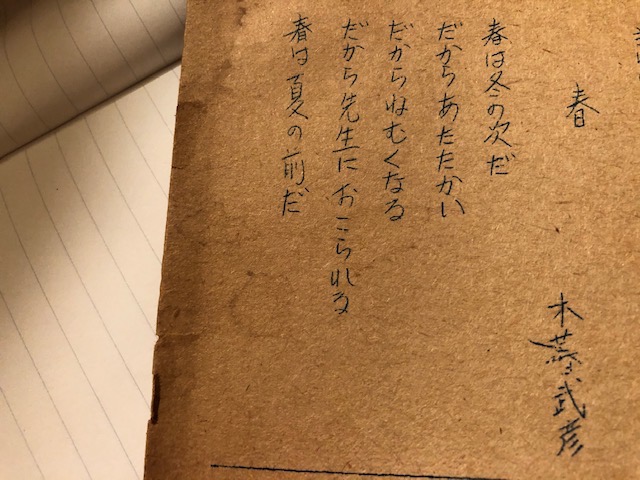 春
木暮武彦
春は冬の次だ
だからあたたかい
だからねむくなる
だから先生におこられる
春は夏の前だ